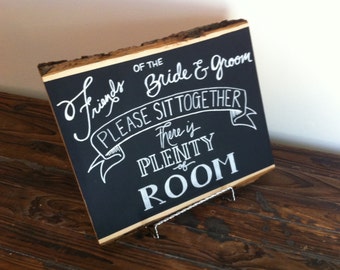 Friends OF THE Bride & Groom
PLEASE SIT TOGETHER
There is
PLENTY
of
ROOM